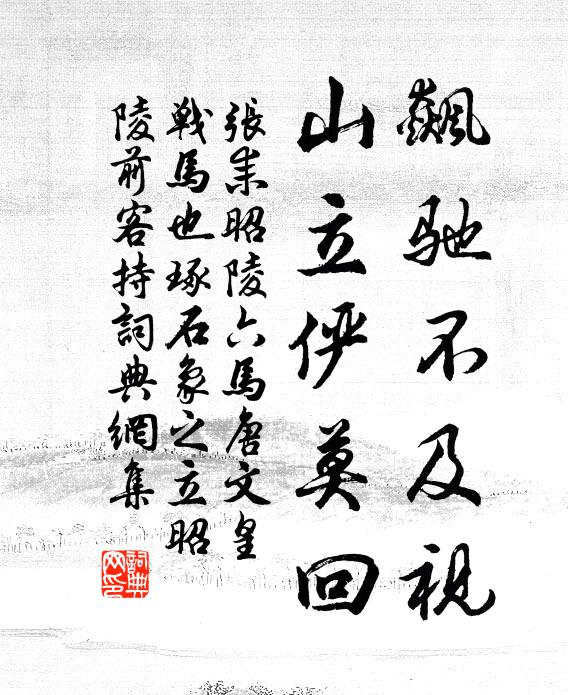 飆馳不及視
山立俨莫回
張耒昭陵六馬唐文皇
戦馬也琢石象之立昭
陵前客持詞典網集